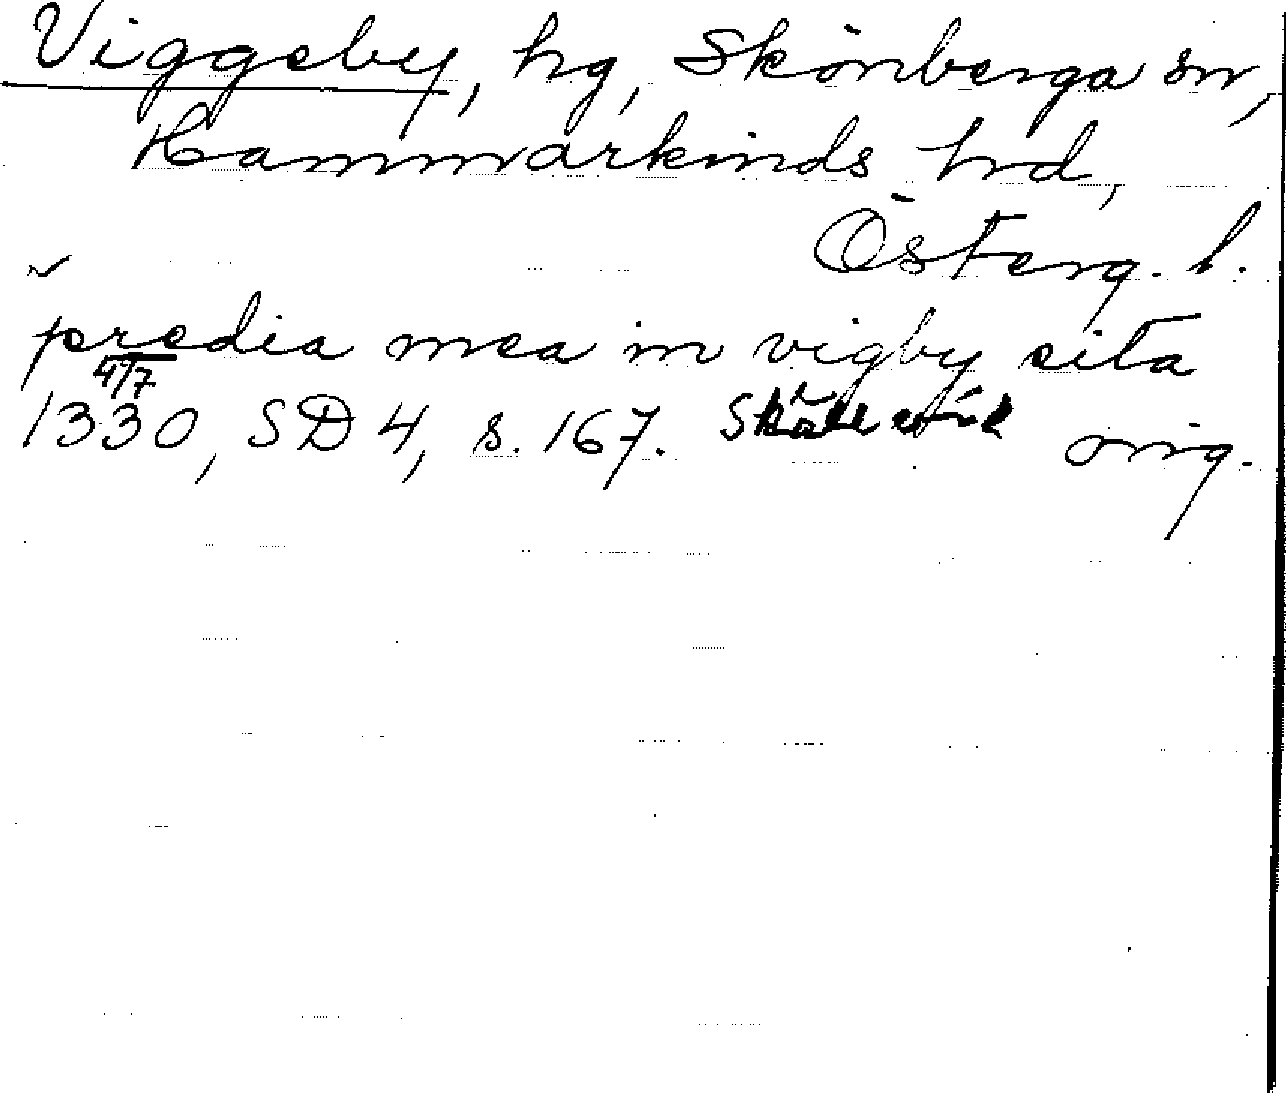 Viggeby, hg, Skönberga sn,
Hammarkinds hrd,
Österg. l.
predia mea in vigby sita
4/7
1330, SD 4, s. 167. Skällvik orig.